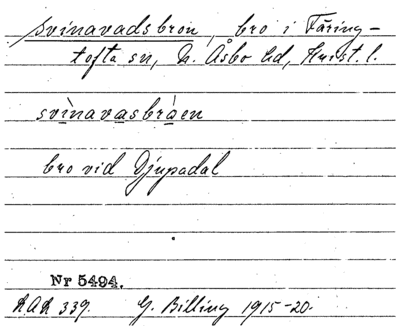 Svinavadsbron, bro i Färing-
tofta sn, N. Åsbo hd, Krist. l.
svìnavasbråen
bro vid Djupadal
Nr 5494.
LAL 339. G. Billing 1915-20.